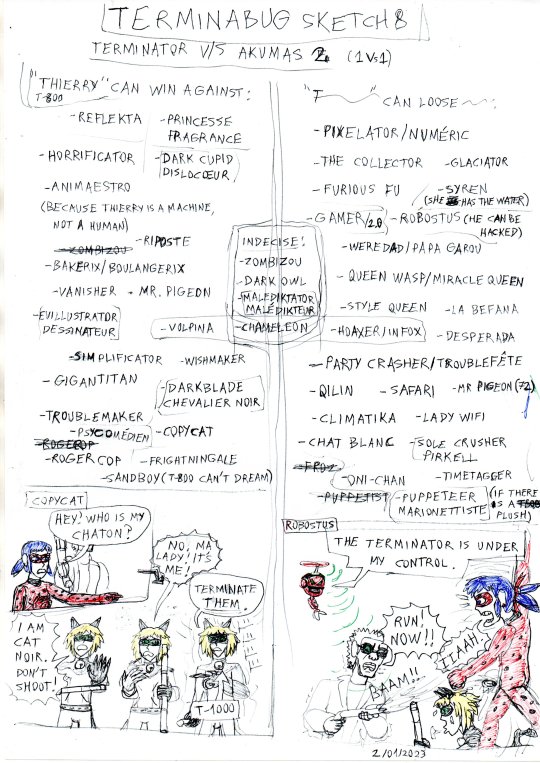 TERMINABUG SKETCH 8
TERMINATOR V/S AKUMAS 2 (1 Vs 1)
"THIERRY" CAN WIN AGAINST:
T-800
-REFLEKTA
-PRINCESSE FRAGRANCE
-HORRIFICATOR
-DARK CUPID
DISLOCŒUR
-ANIMAESTRO
(BECAUSE THIERRY IS A MACHINE,
NOT A HUMAN)
-ZOMBIZOU
-RIPOSTE
-BAKERIX/BOULANGERIX
-VANISHER
-MR. PIGEON
-EVILLUSTRATOR
DESSINATEUR
-VOLPINA
-SIMPLIFICATOR
-WISHMAKER
-GIGANTITAN
-DARKBLADE
CHEVALIER NOIR
-TROUBLEMAKER
-PSYCOMÉDIEN
-COPYCAT
-ROGERCOP
-FRIGHTNINGALE
-SANDBOY (T-800 CAN'T DREAM)
INDECISE:
-ZOMBIZOU
-DARK OWL
-MALEDIKTATOR
MALÉDIKTEUR
-CHAMELEON
"T CAN LOOSE :
-PIXELATOR/NUMÉRIC
-THE COLLECTOR
-GLACIATOR
-FURIOUS FU
-SYREN
(SHE HAS THE WATER)
-GAMER/2.0
-ROBOSTUS (HE CAN BE
HACKED)
-WEREDAD/PAPA GAROU
-QUEEN WASP/MIRACLE QUEEN
-STYLE QUEEN
-LA BEFANA
-HOAXER/INFOX
-DESPERADA
-PARTY CRASHER/TROUBLEFÊTE
-QILIN
-SAFARI
-MR PIGEON (72)
-CLIMATIKA
-LADY WIFI
-CHAT BLANC
-SOLE CRUSHER
PIRKELL
-FROZ
-ONI-CHAN
-TIMETAGGER
-PUPPETIST
-PUPPETEER
MARIONETTISTE
(IF THERE
IS A
PLUSH)
COPYCAT
HEY! WHO IS MY
CHATON?
NO, MA
LADY! IT'S
ME!
TERMINATE
THEM.
I AM
CAT
NOIR.
DON'T
SHOOT!
T-1000
ROBOSTUS
THE TERMINATOR IS UNDER
MY CONTROL.
RUN!
NOW!!
IIAAH!
BAAM!!
2/01/2023